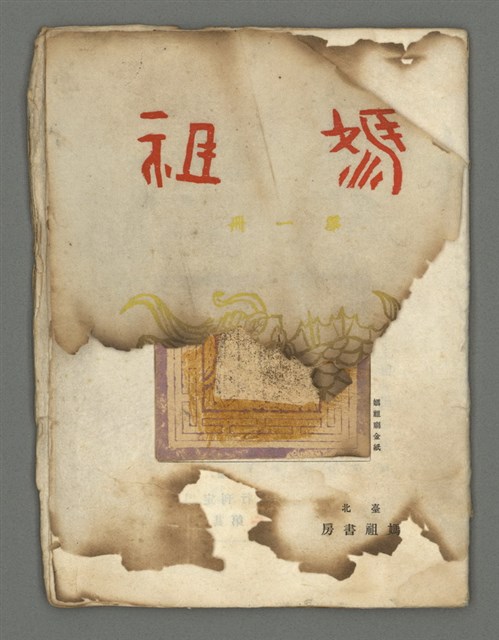 媽祖
第一冊
媽祖廟金紙
臺北
媽祖書房